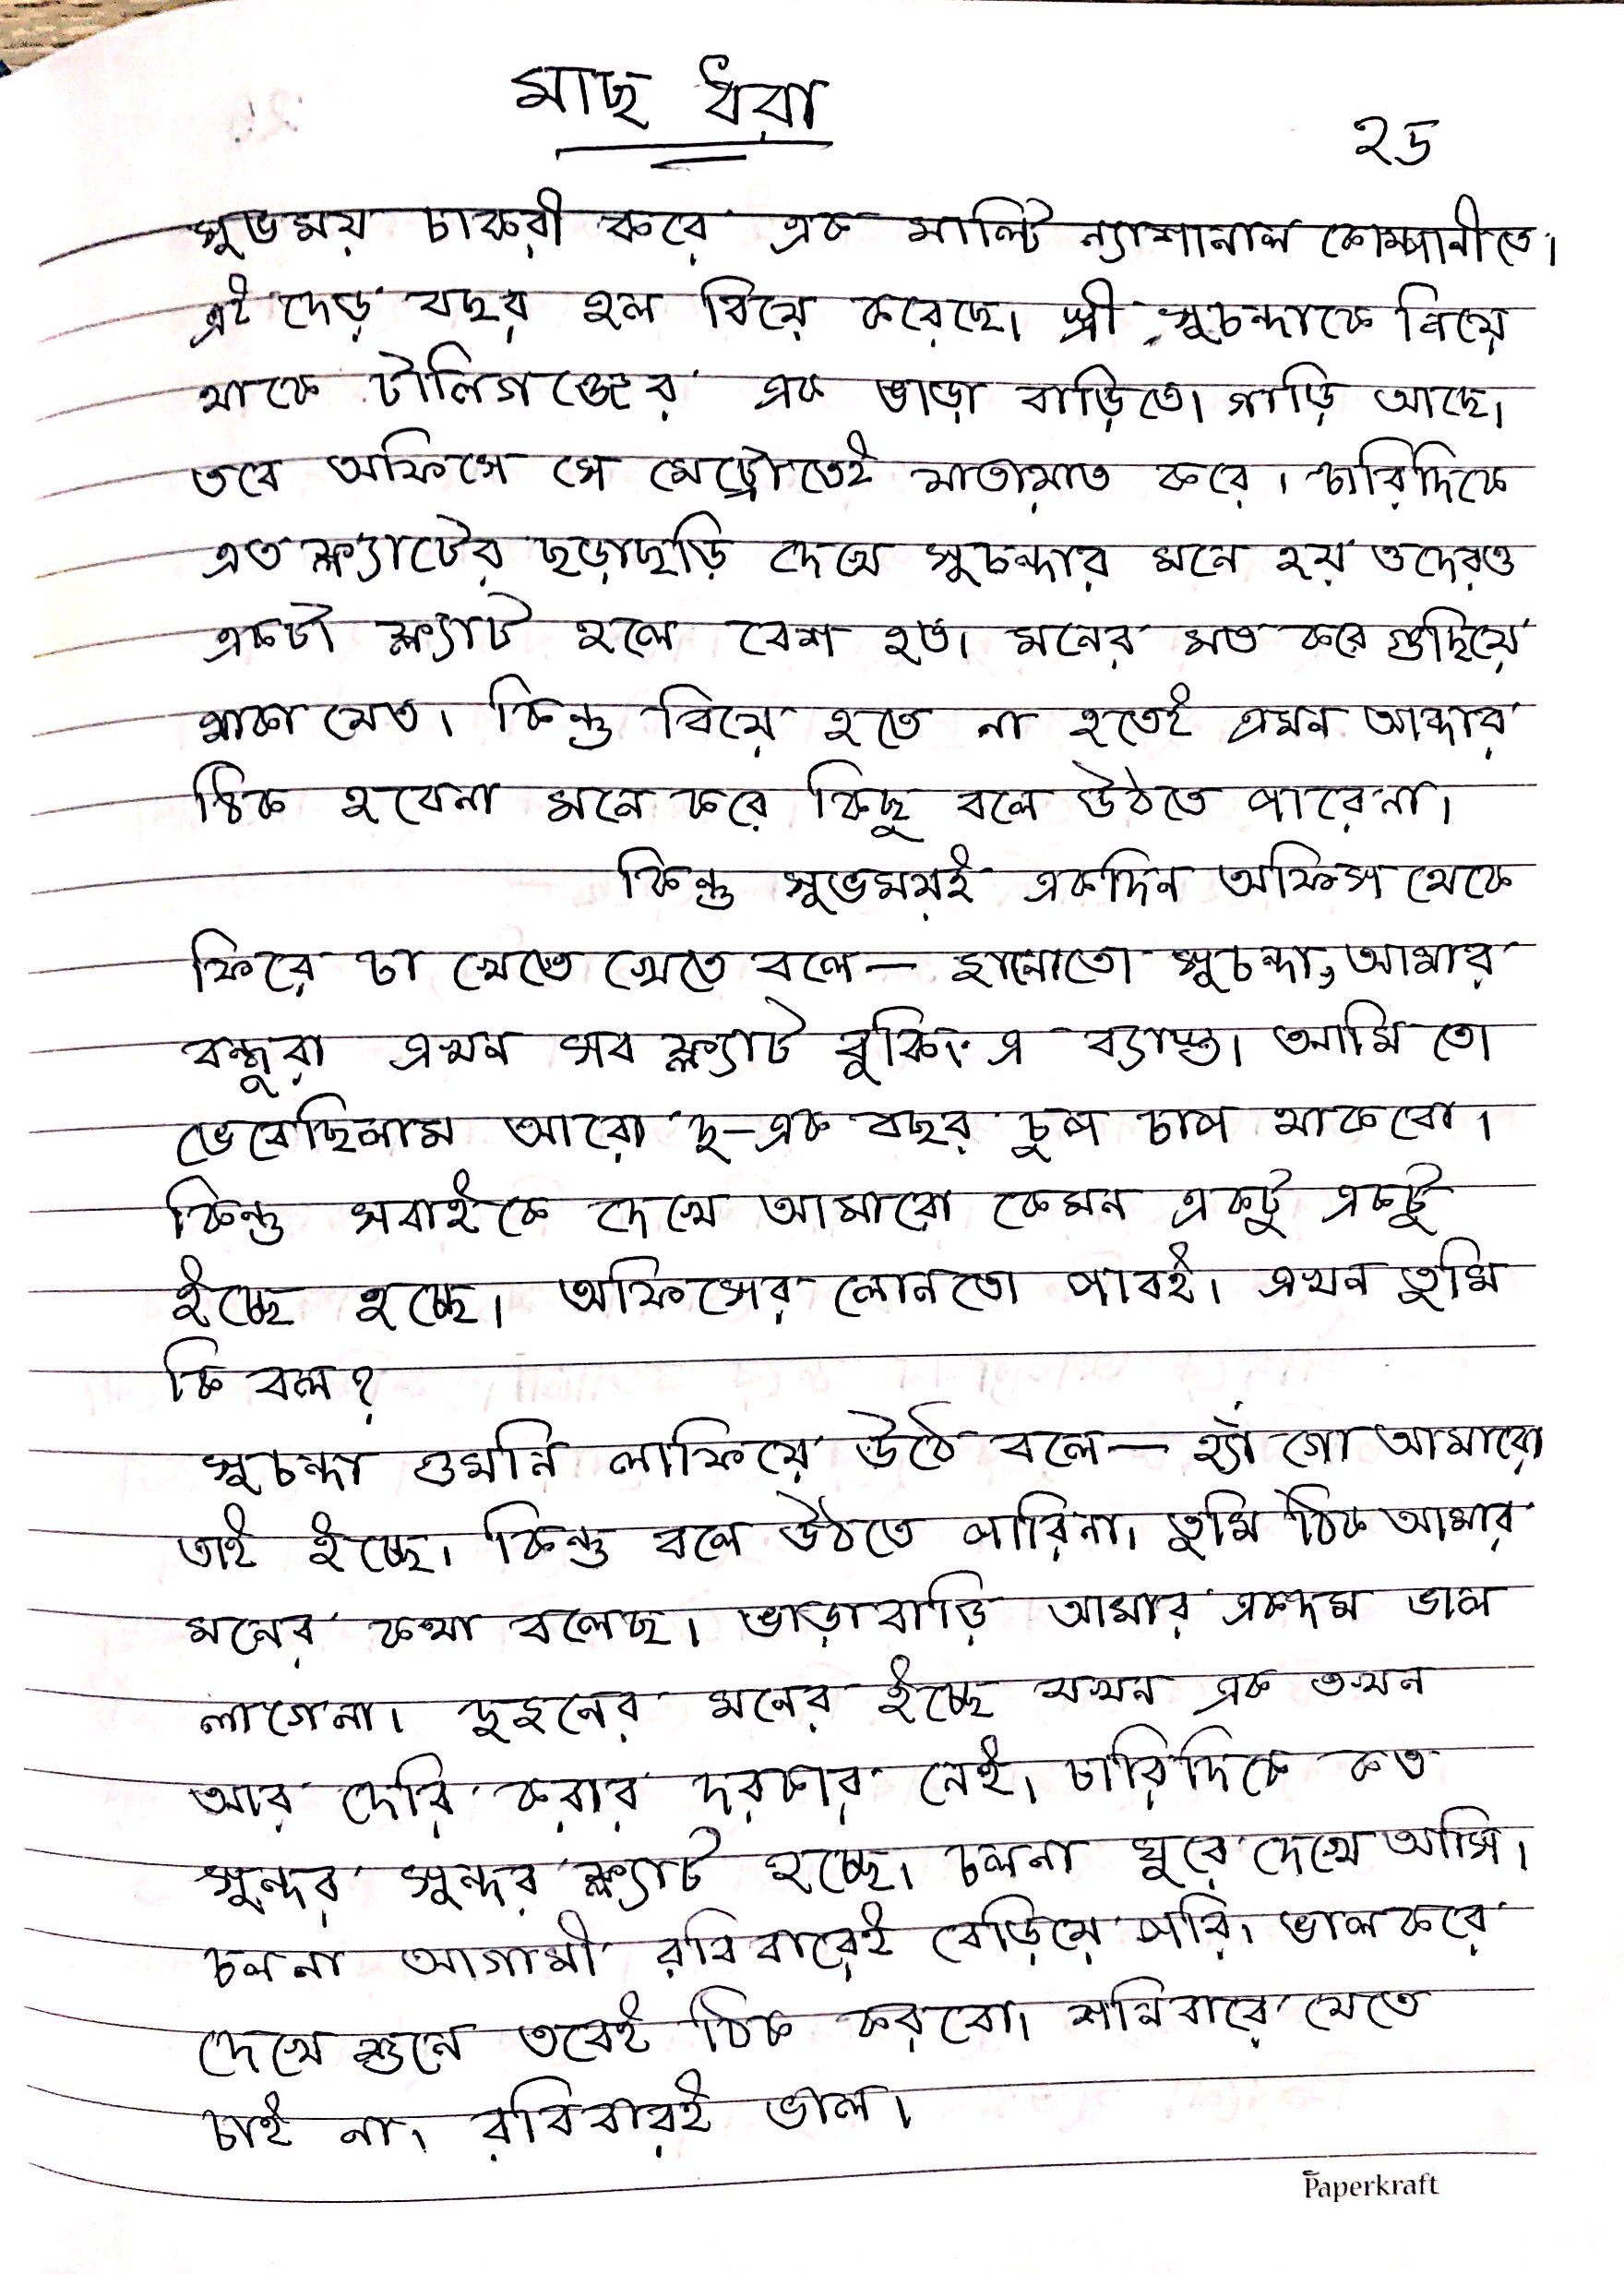 মাছ ধরা
২৬
সুভময় চাকরী করে এক মাল্টি ন্যাশানাল কোম্পানীতে।
এই দেড় বছর হল বিয়ে করেছে। স্ত্রী সুচন্দাকে নিয়ে
থাকে টালিগঞ্জের এক ভাড়া বাড়িতে। গাড়ি আছে।
তবে অফিসে সে মেট্রোতেই যাতায়াত করে। চারিদিকে
এত ফ্ল্যাটের ছড়াছড়ি দেখে সুচন্দার মনে হয় ওদেরও
একটা ফ্ল্যাট হলে বেশ হত। মনের মত করে গুছিয়ে
থাকা যেত। কিন্তু বিয়ে হতে না হতেই এমন আব্দার
ঠিক হবেনা মনে করে কিছু বলে উঠতে পারেনা।
কিন্তু সুভময়ই একদিন অফিস থেকে
ফিরে চা খেতে খেতে বলে — জানোতো সুচন্দা, আমার
বন্ধুরা এখন সব ফ্ল্যাট বুকিং এ ব্যাস্ত। আমি তো
ভেবেছিলাম আরো দু-এক বছর চুপ চাপ থাকবো।
কিন্তু সবাইকে দেখে আমারো কেমন একটু একটু
ইচ্ছে হচ্ছে। অফিসের লোনতো পাবই। এখন তুমি
কি বল?
সুচন্দা ওমনি লাফিয়ে উঠে বলে — হ্যাঁ গো আমারো
তাই ইচ্ছে। কিন্তু বলে উঠতে পারিনা। তুমি ঠিক আমার
মনের কথা বলেছ। ভাড়াবাড়ি আমার একদম ভাল
লাগেনা। দুজনের মনের ইচ্ছে যখন এক তখন
আর দেরি করার দরকার নেই। চারিদিকে কত
সুন্দর সুন্দর ফ্ল্যাট হচ্ছে। চলনা ঘুরে দেখে আসি।
চলনা আগামী রবিবারেই বেড়িয়ে পরি। ভাল করে
দেখে শুনে তবেই ঠিক করবো। শনিবারে যেতে
চাই না। রবিবারই ভাল।
Paperkraft